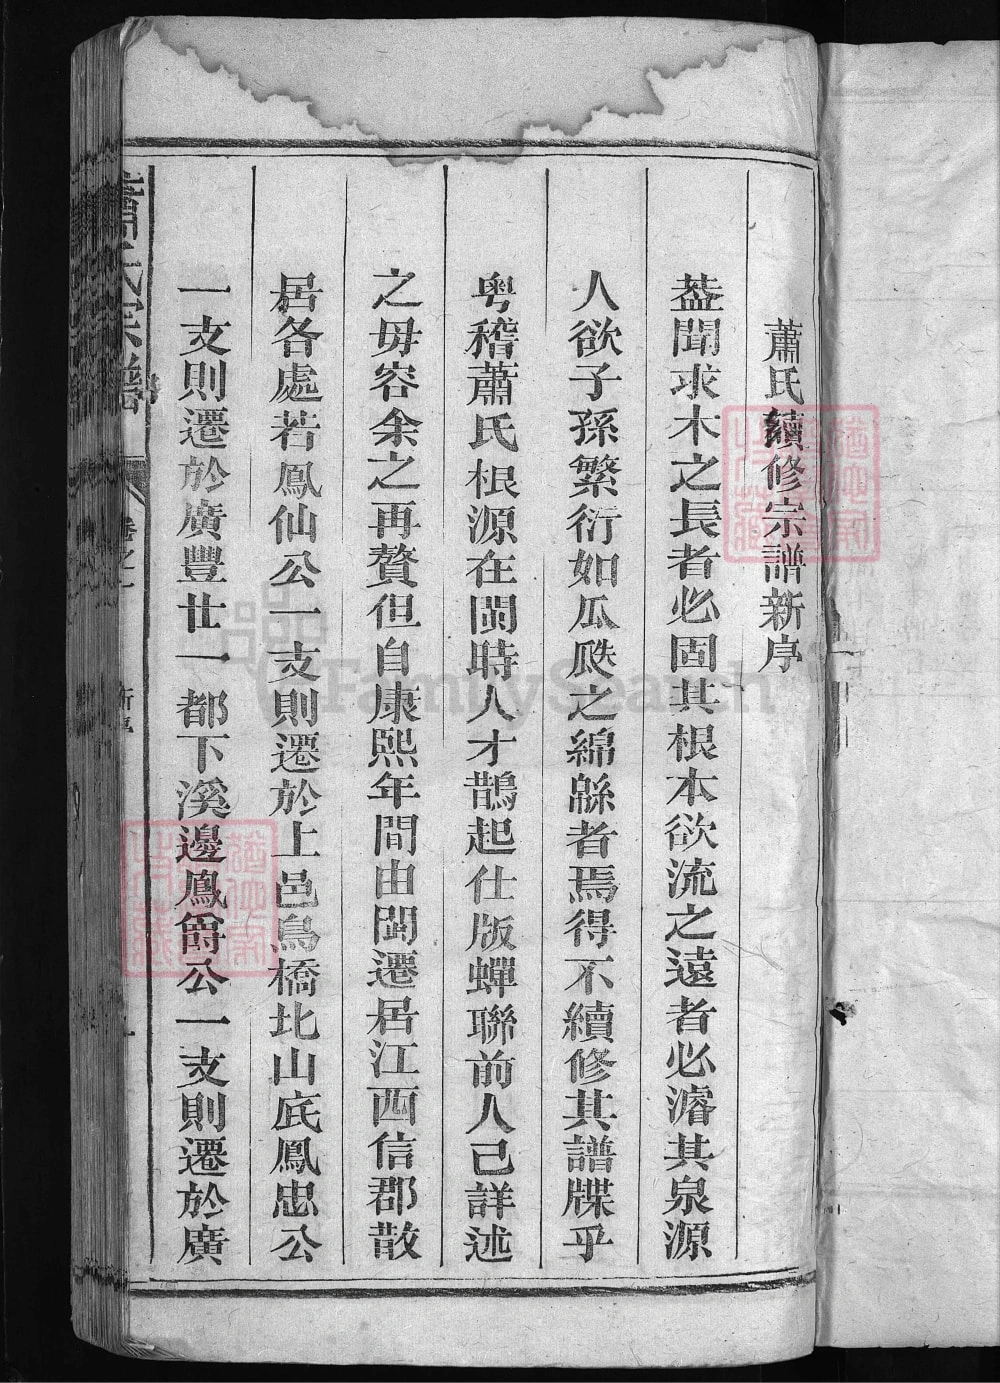 蕭氏續修宗譜新序
葢聞求木之長者必固其根本欲流之遠者必濬其泉源
人欲子孫繁衍如瓜瓞之綿緜者焉得不續修其譜牒乎
粵稽蕭氏根源在閩時人才鵲起仕版蟬聯前人己詳述
之毋容余之再贅但自康熙年間由閩遷居江西信郡散
居各處若鳳仙公一支則遷於上邑烏橋北山底鳳忠公
一支則遷於廣豐廿一都下溪邊鳳爵公一支則遷於廣
蕭氏宗譜
卷之一
新序
FamilySearch